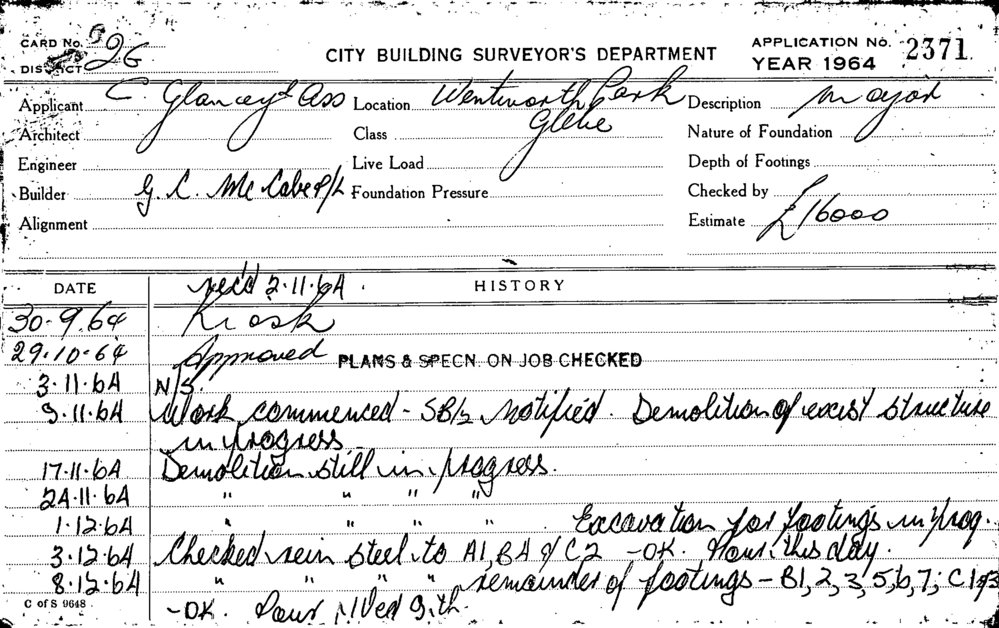 CARD No. 9
DISTRICT 26
CITY BUILDING SURVEYOR'S DEPARTMENT
APPLICATION No. 2371
YEAR 1964
Applicant C. Glancey & Ass
Location Wentworth Park Glebe
Description Major
Architect
Class
Nature of Foundation
Engineer
Live Load
Depth of Footings
Builder G. C. McCabe P/L
Foundation Pressure
Checked by
Alignment
Estimate £16000
DATE
rec'd 2.11.64.
HISTORY
30-9.64 Kiosk
29.10-64 Approved PLANS & SPECN. ON JOB CHECKED
3.11.64 N/S.
9.11.64 Work commenced - SB/2 Notified. Demolition of exist structure
in progress.
17.11.64 Demolition still in progress.
24.11.64 " " " "
1.12.64 " " " " Excavation for footings in prog.
3.12.64 Checked rein steel to A1, B4 & C2 - OK. Pour this day.
8.12.64 " " " " remainder of footings - B1, 2, 3, 5, 6, 7; C1 & 3
- OK. Pour Wed 9th.
C of S 9648